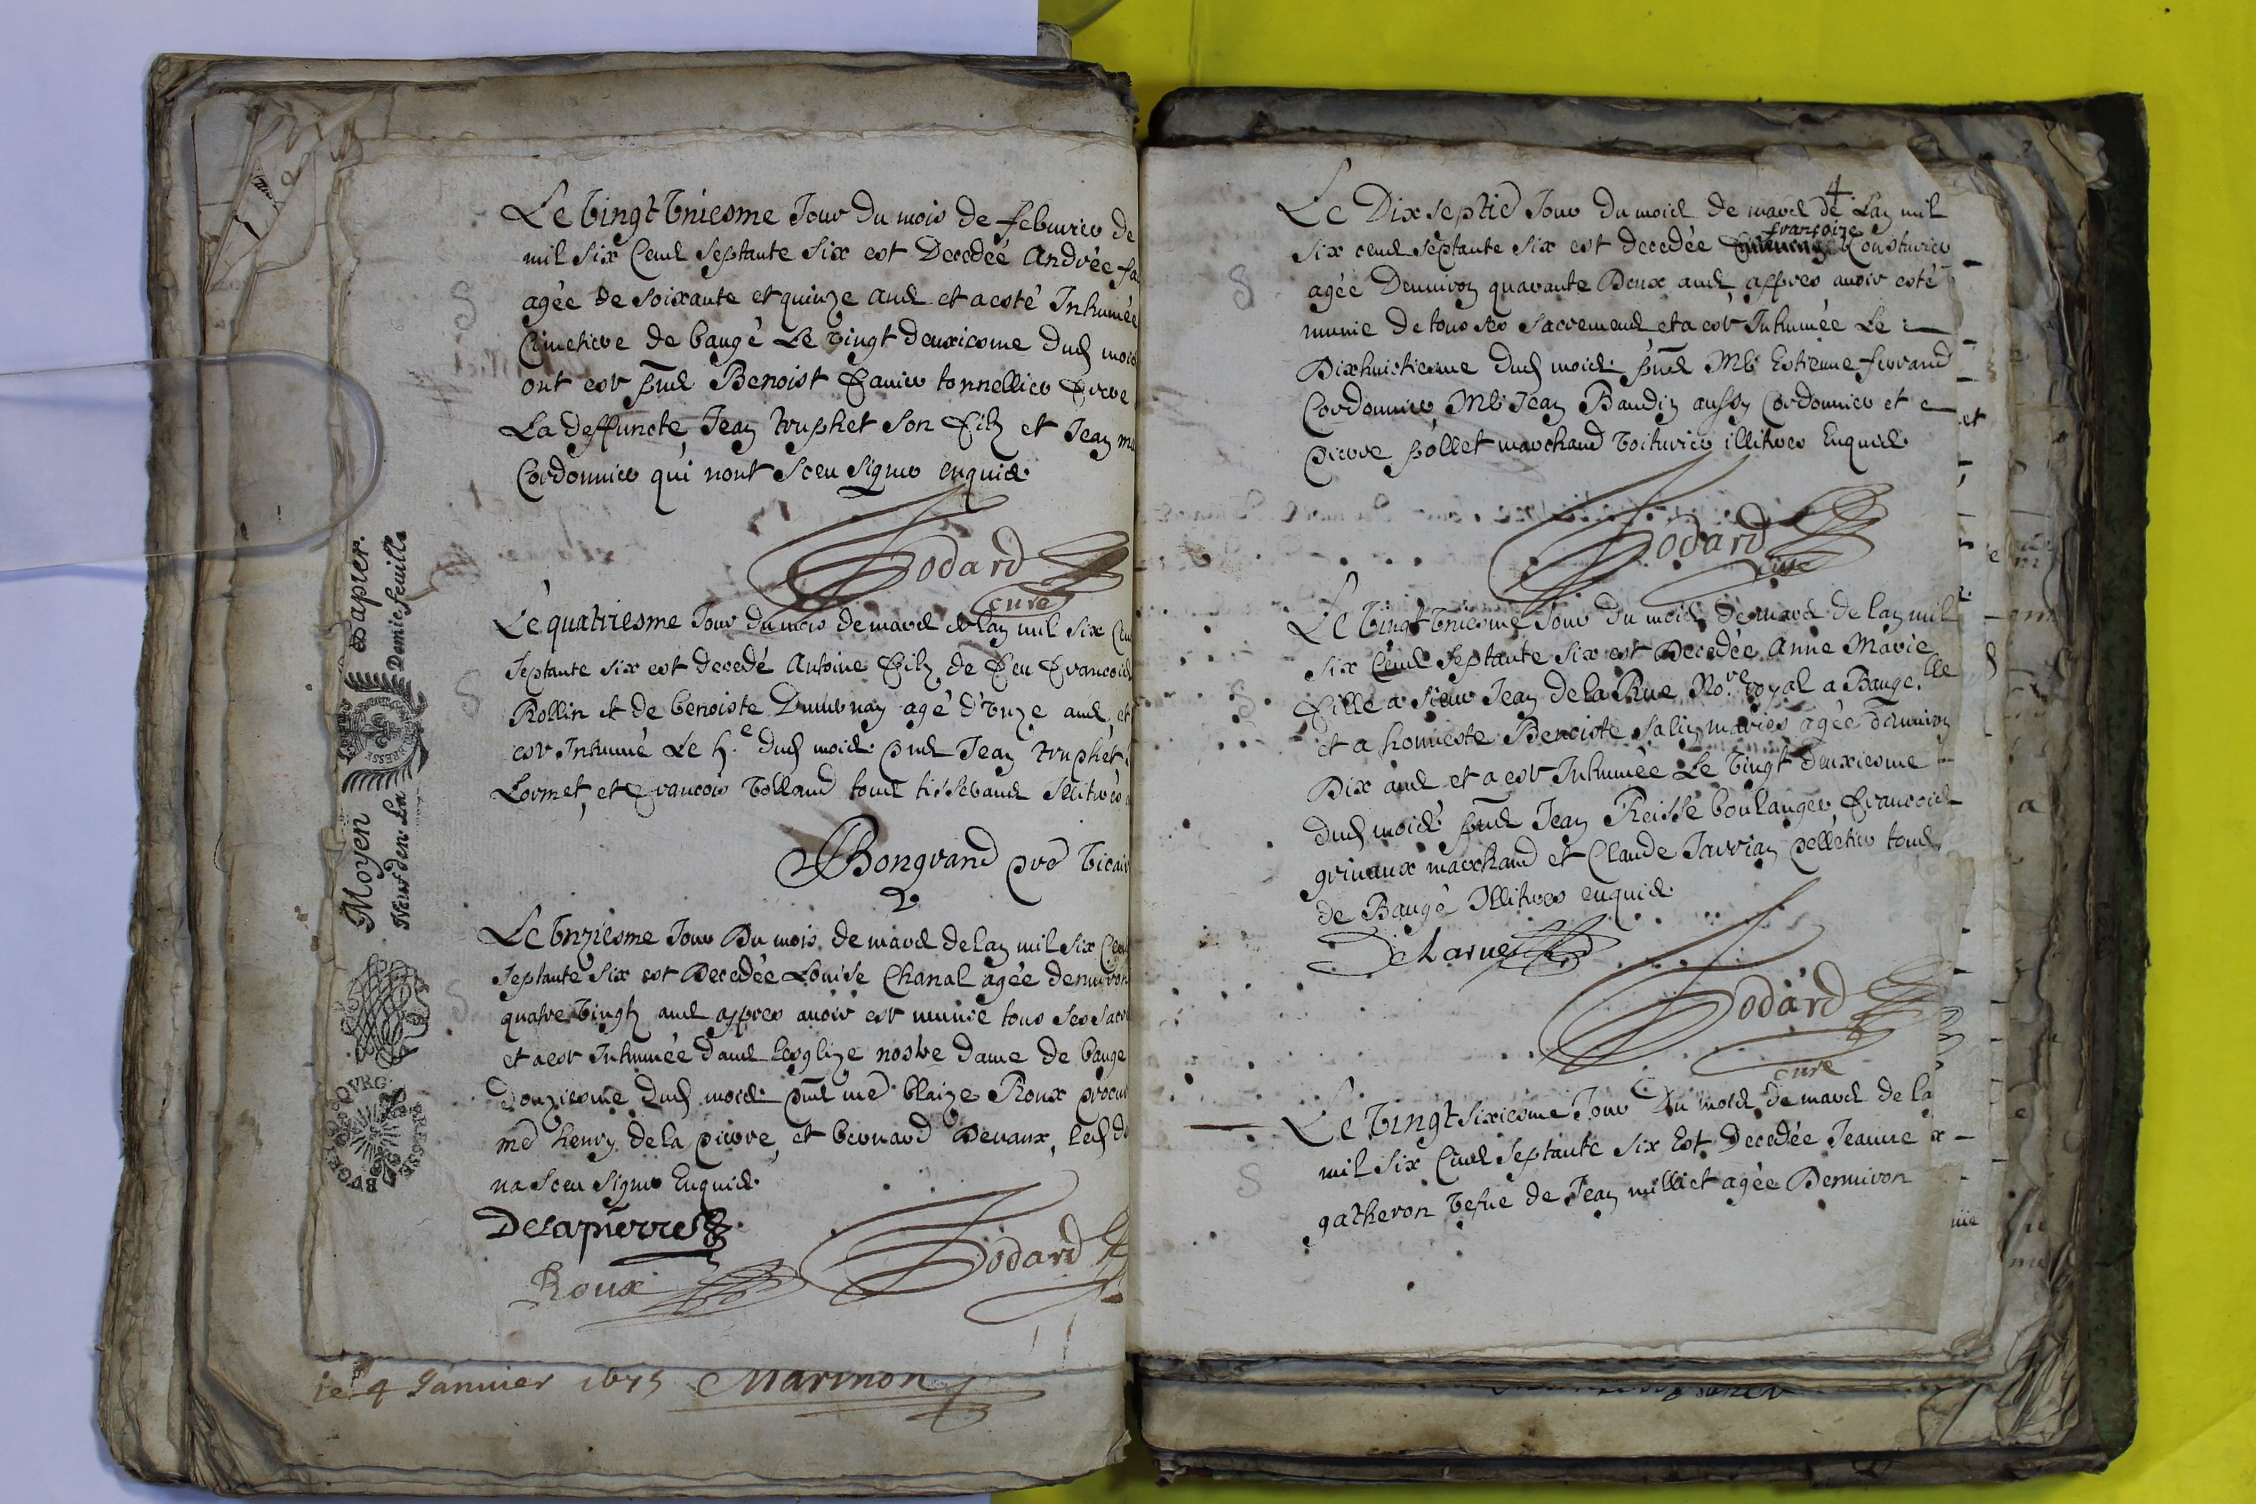 Le vingt vniesme Jour du mois de febvrier de
mil six Cens septante six est Decedée Andrée fa
agée de soixante et quinze ans et a esté Inhumée
Cimetiere de baugé Le vingt deuxiesme dud mois
ont est pns Benoist favier tonnellier frere
La deffuncte, Jean truphet son filz et Jean
Cordonnier qui nont sceu signer enquis
Godard
curé
Le quatriesme Jour du mois de mars de lan mil six Cen
septante six est decedé Antoine filz de feu francois
Rollin et de benoiste Duuernay agé d'vnze ans et
est Inhumé Le 5.e dud mois pns Jean truphet
Lormet, et francois Volland tous tisserans Illitres
Bongrand pre vicair
2
Le vnziesme Jour Du mois de mars de lan mil six Cen
septante six est Decedée Louise Chanal agée denuiron
quatre vingtz ans appres auoir est munie tous ses sacr
et a est Inhumée dans lesglize nostre dame de bauge
Douziesme dud mois pns me blaize Roux procur
me henry de la pierre, et bernard Deuaux, led d
na sceu signer Enquis
Delapierre
Roux
Godard
le 4 Januier 1675 Marinon
Moyen Papier.
Neuf den. La Demie feuille
BVGEY BOVRG. BRESSE
4
Le Dix septie Jour du mois de mars de Lan mil
francoize
six cens septante six est decedée Cousturier
agée Denuiron quarante Deux ans appres auoir esté
munie de tous ses sacremens et a est Inhumée Le
Dixhuictiesme dud mois pns Mre Estienne ferrand
Cordonnier Mre Jean Baudin aussy Cordonnier et
pierre pollet marchand voiturier illitres Enquis
Godard
curé
Le vingt vniesme Jour du mois de mars de lan mil
six Cens septante six est Decedée Anne Marie
fille a sieur Jean de la Rue No.re royal a Bauge
et a honneste Benoiste salin mariés agée denuiron
Dix ans et a est Inhumée Le vingt deuxiesme
dud mois pns Jean Reisse boulanger, francois
grinaux marchand et Claude Jarrian pelletier tous
de Baugé Illitres enquis
DeLarue
Godard
curé
Le vingt sixiesme Jour Du mois de mars de la
mil six Cens septante six Est Decedée Jeanne
gatheron vefue de Jean milliet agée Denuiron